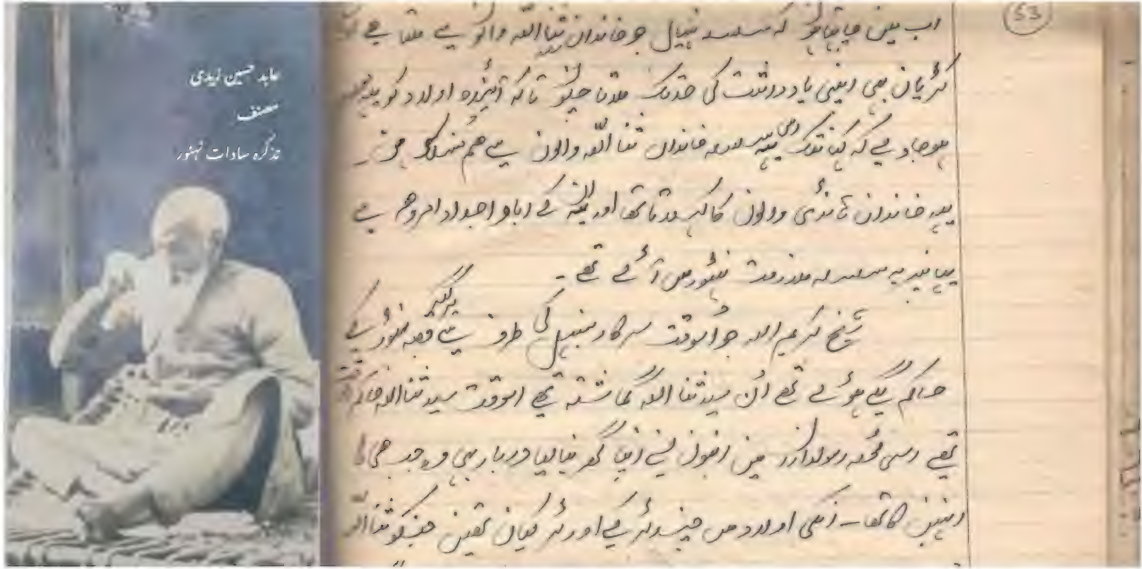 عابد حسین زیدی
مصنف
تذکرہ سادات نہٹور
53
اب میں چاہتا ہوں کہ سلسلہ ننہال جو خاندان ثنا اللہ والوں سے ملتا ہے
کڑیاں بھی اپنی یادداشت کی حد تک ملاتا چلوں تاکہ آئندہ اولاد کو
ہوجاوے کہ کہانتک یہ سلسلہ خاندان ثنا اللہ والوں سے ہم منسلک
یہ خاندان والوں کا کہلاتا تھا اور ان کے اباو اجداد امروھہ سے
یہاں پر بہ سلسلہ ملازمت نہٹور میں آئے تھے ۔
شیخ کریم اللہ جو اسوقت سرکار سنبھل کی طرف سے پرگنہ قصبہ نہٹور کے
حاکم ہوئے تھے ان سید ثنا اللہ گماشتہ تھے اسوقت سید ثنا اللہ
تھے اسی محلہ میں انہوں نے اپنا گھر بنالیا دربار بھی
انہیں کا تھا - انکی اولاد میں چند لڑکے اور لڑکیاں تھیں جنکو ثنا اللہ